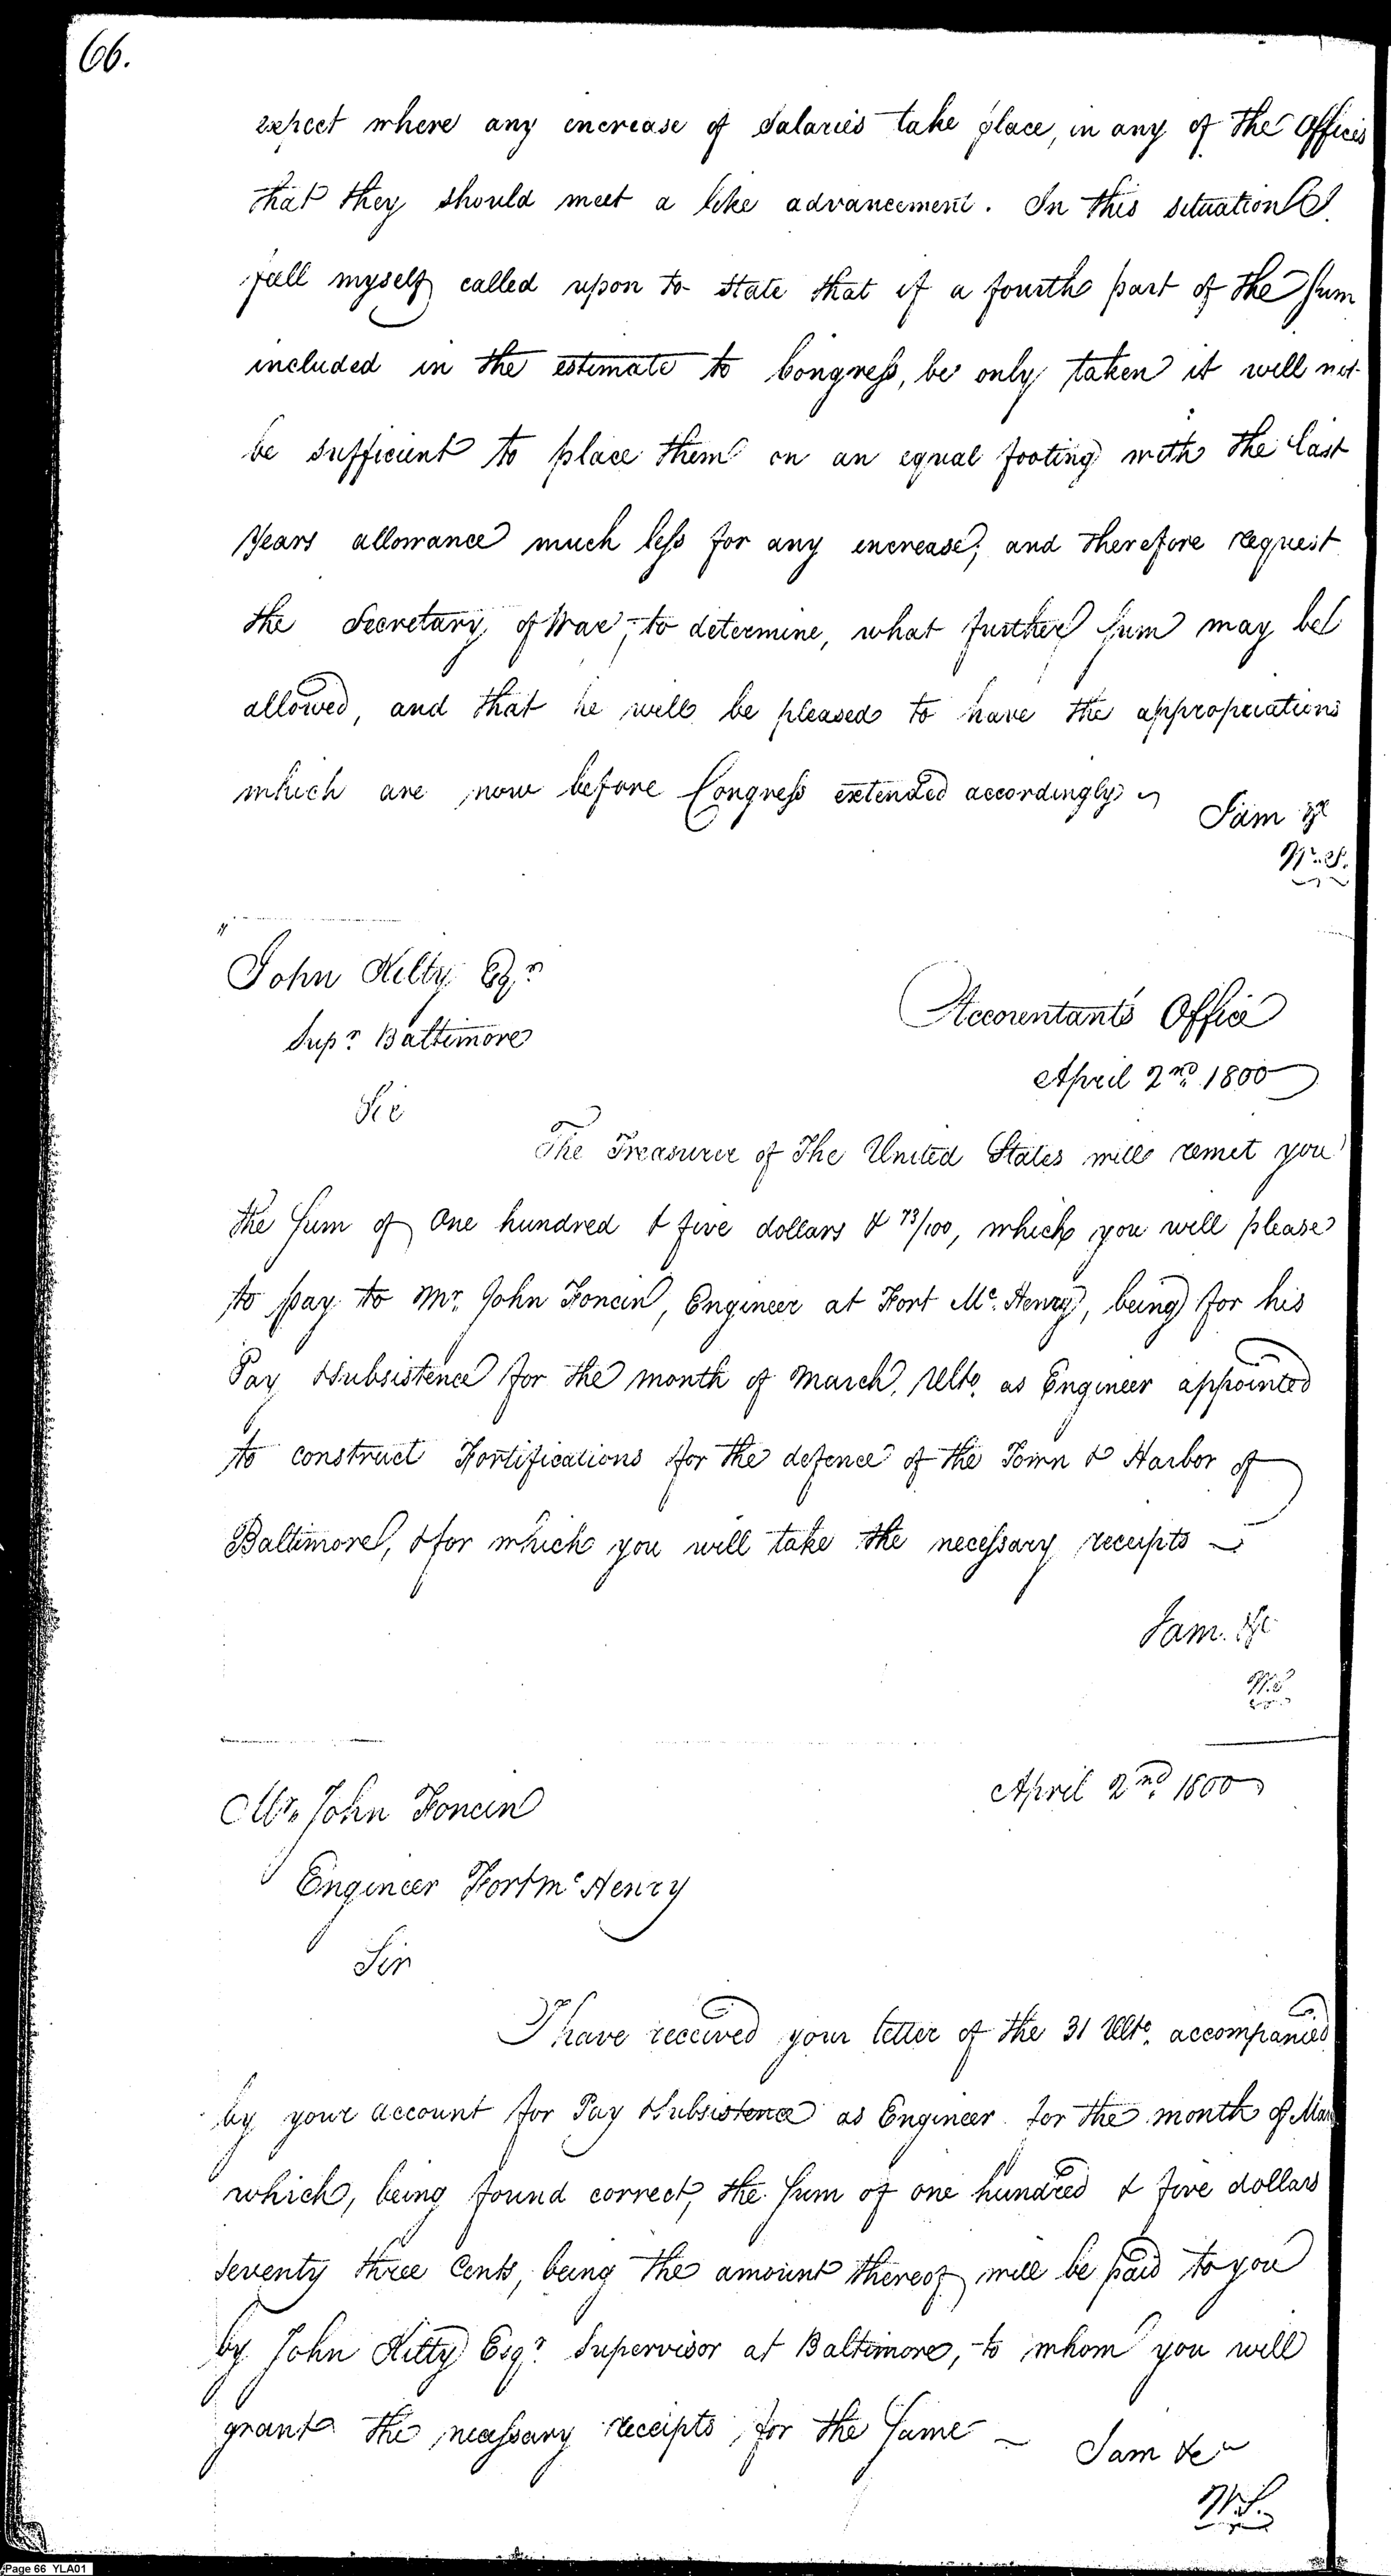 66.
expect where any encrease of Salaries take place, in any of the Offices
that they should meet a like advancement. In this situation I
feell myself called upon to state that if a fourth part of the Sum
included in the estimate to Congress, be only taken it will not
be sufficient to place them on an equal footing with the last
Years allowance much less for any encrease; and therefore request
the Secretary of War, to determine, what further Sum may be
allowed, and that he will be pleased to have the appropriations
which are now before Congress extended accordingly
I am &c
W. S.
John Kilty Esqr
Supr Baltimore
Accountants Office
April 2nd 1800
Sir
The Treasurer of The United States will remit you
the Sum of One hundred & five dollars & 73/100, which you will please
to pay to Mr. John Foncin, Engineer at Fort Mc. Henry, being for his
Pay &Subsistence for the month of March, Ulto. as Engineer appointed
to construct Fortifications for the defence of the Town & Harbor of
Baltimore, &for which you will take the necessary receipts
I am. &c
W.S
April 2nd 1800
Mr. John Foncin
Engineer Fort Mc Henry
Sir
I have received your letter of the 31 Ulto. accompanied
by your account for Pay &Subsistence as Engineer for the month of Mar
which, being found correct, the Sum of one hundred & five dollars
seventy three Cents, being the amount thereof will be paid to you
by John Kilty Esqr. Supervisor at Baltimore, to whom you will
grant the necessary receipts for the Same
I am &c
W.S.
Page 66 YLA01